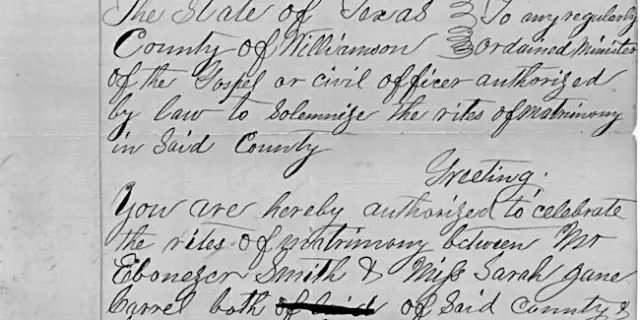 The State of Texas } To any regularly
County of Williamson } ordained Minister
of the Gospel or civil officer authorized
by law to Solemnize the rites of matrimony
in Said County
Greeting.
You are hereby authorized to celebrate
the rites of matrimony between Mr
Ebonezer Smith & Miss Sarah Jane
Carrel both of Said of Said County &